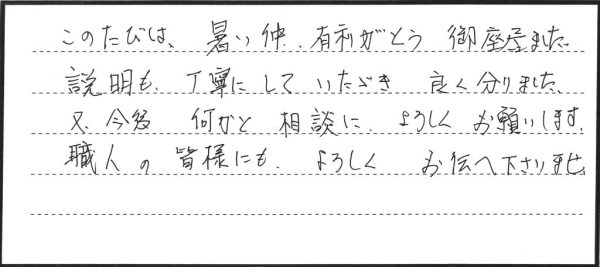 このたびは、暑い仲、有利がとう 御座居ました。
説明も、丁寧にして いただき 良く分りました。
又、今後 何かと 相談に、よろしく お願いします。
職人の 皆様にも、よろしく お伝へ下さりませ。